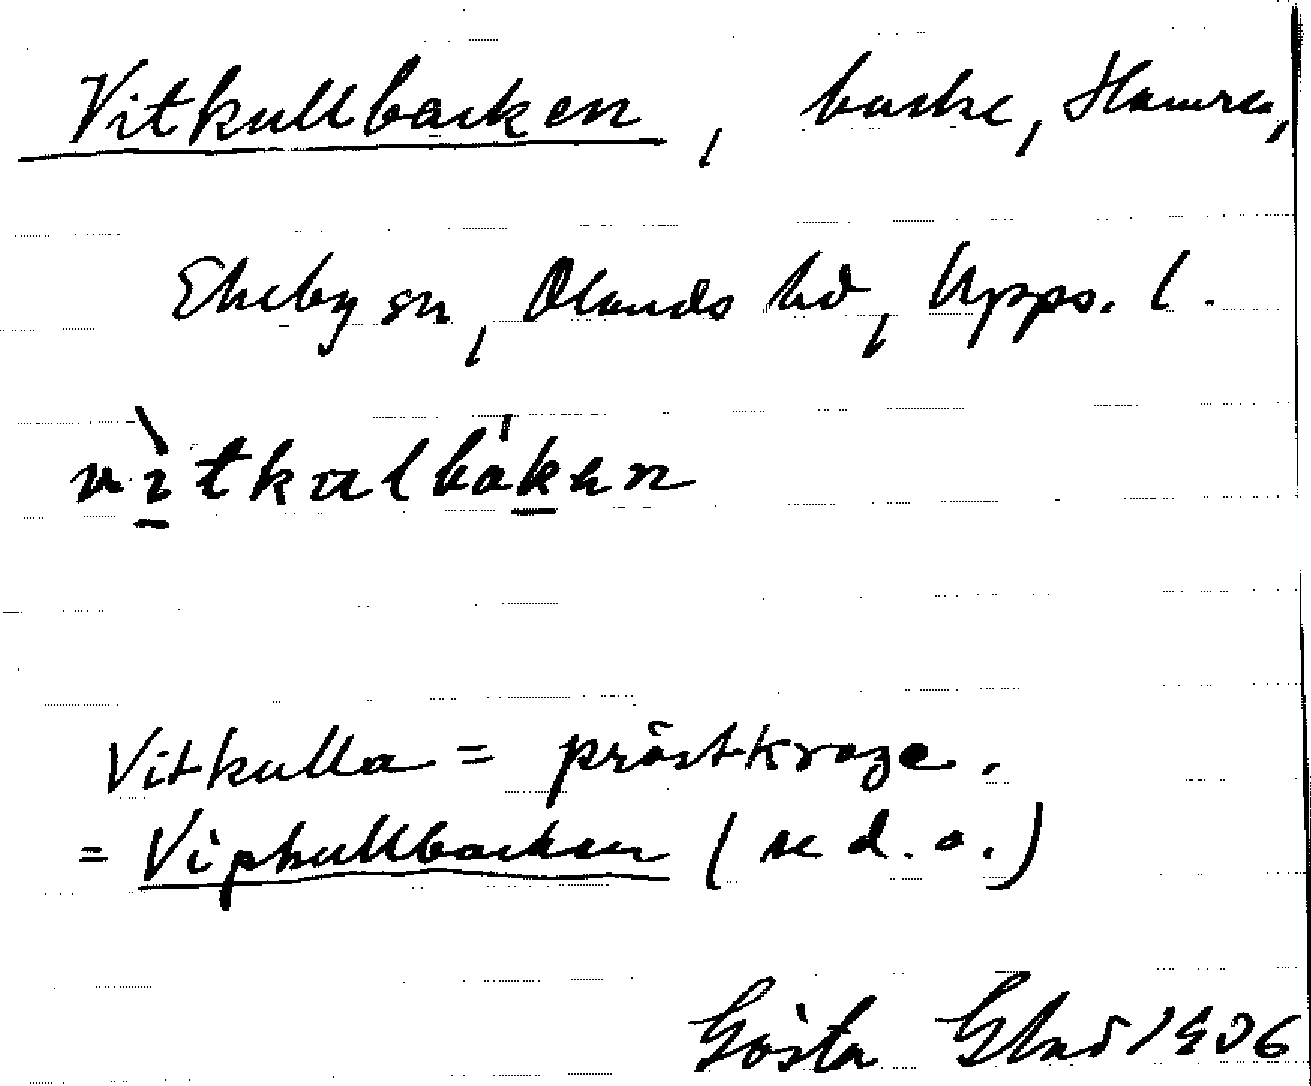 Vitkullbacken, backe, Hamra,
Ekeby sn, Olands hd, Upps. l.
vìtkulbàken
Vitkulla = prästkrage.
= Vipkullbacken (se d. o.)
Gösta 1906